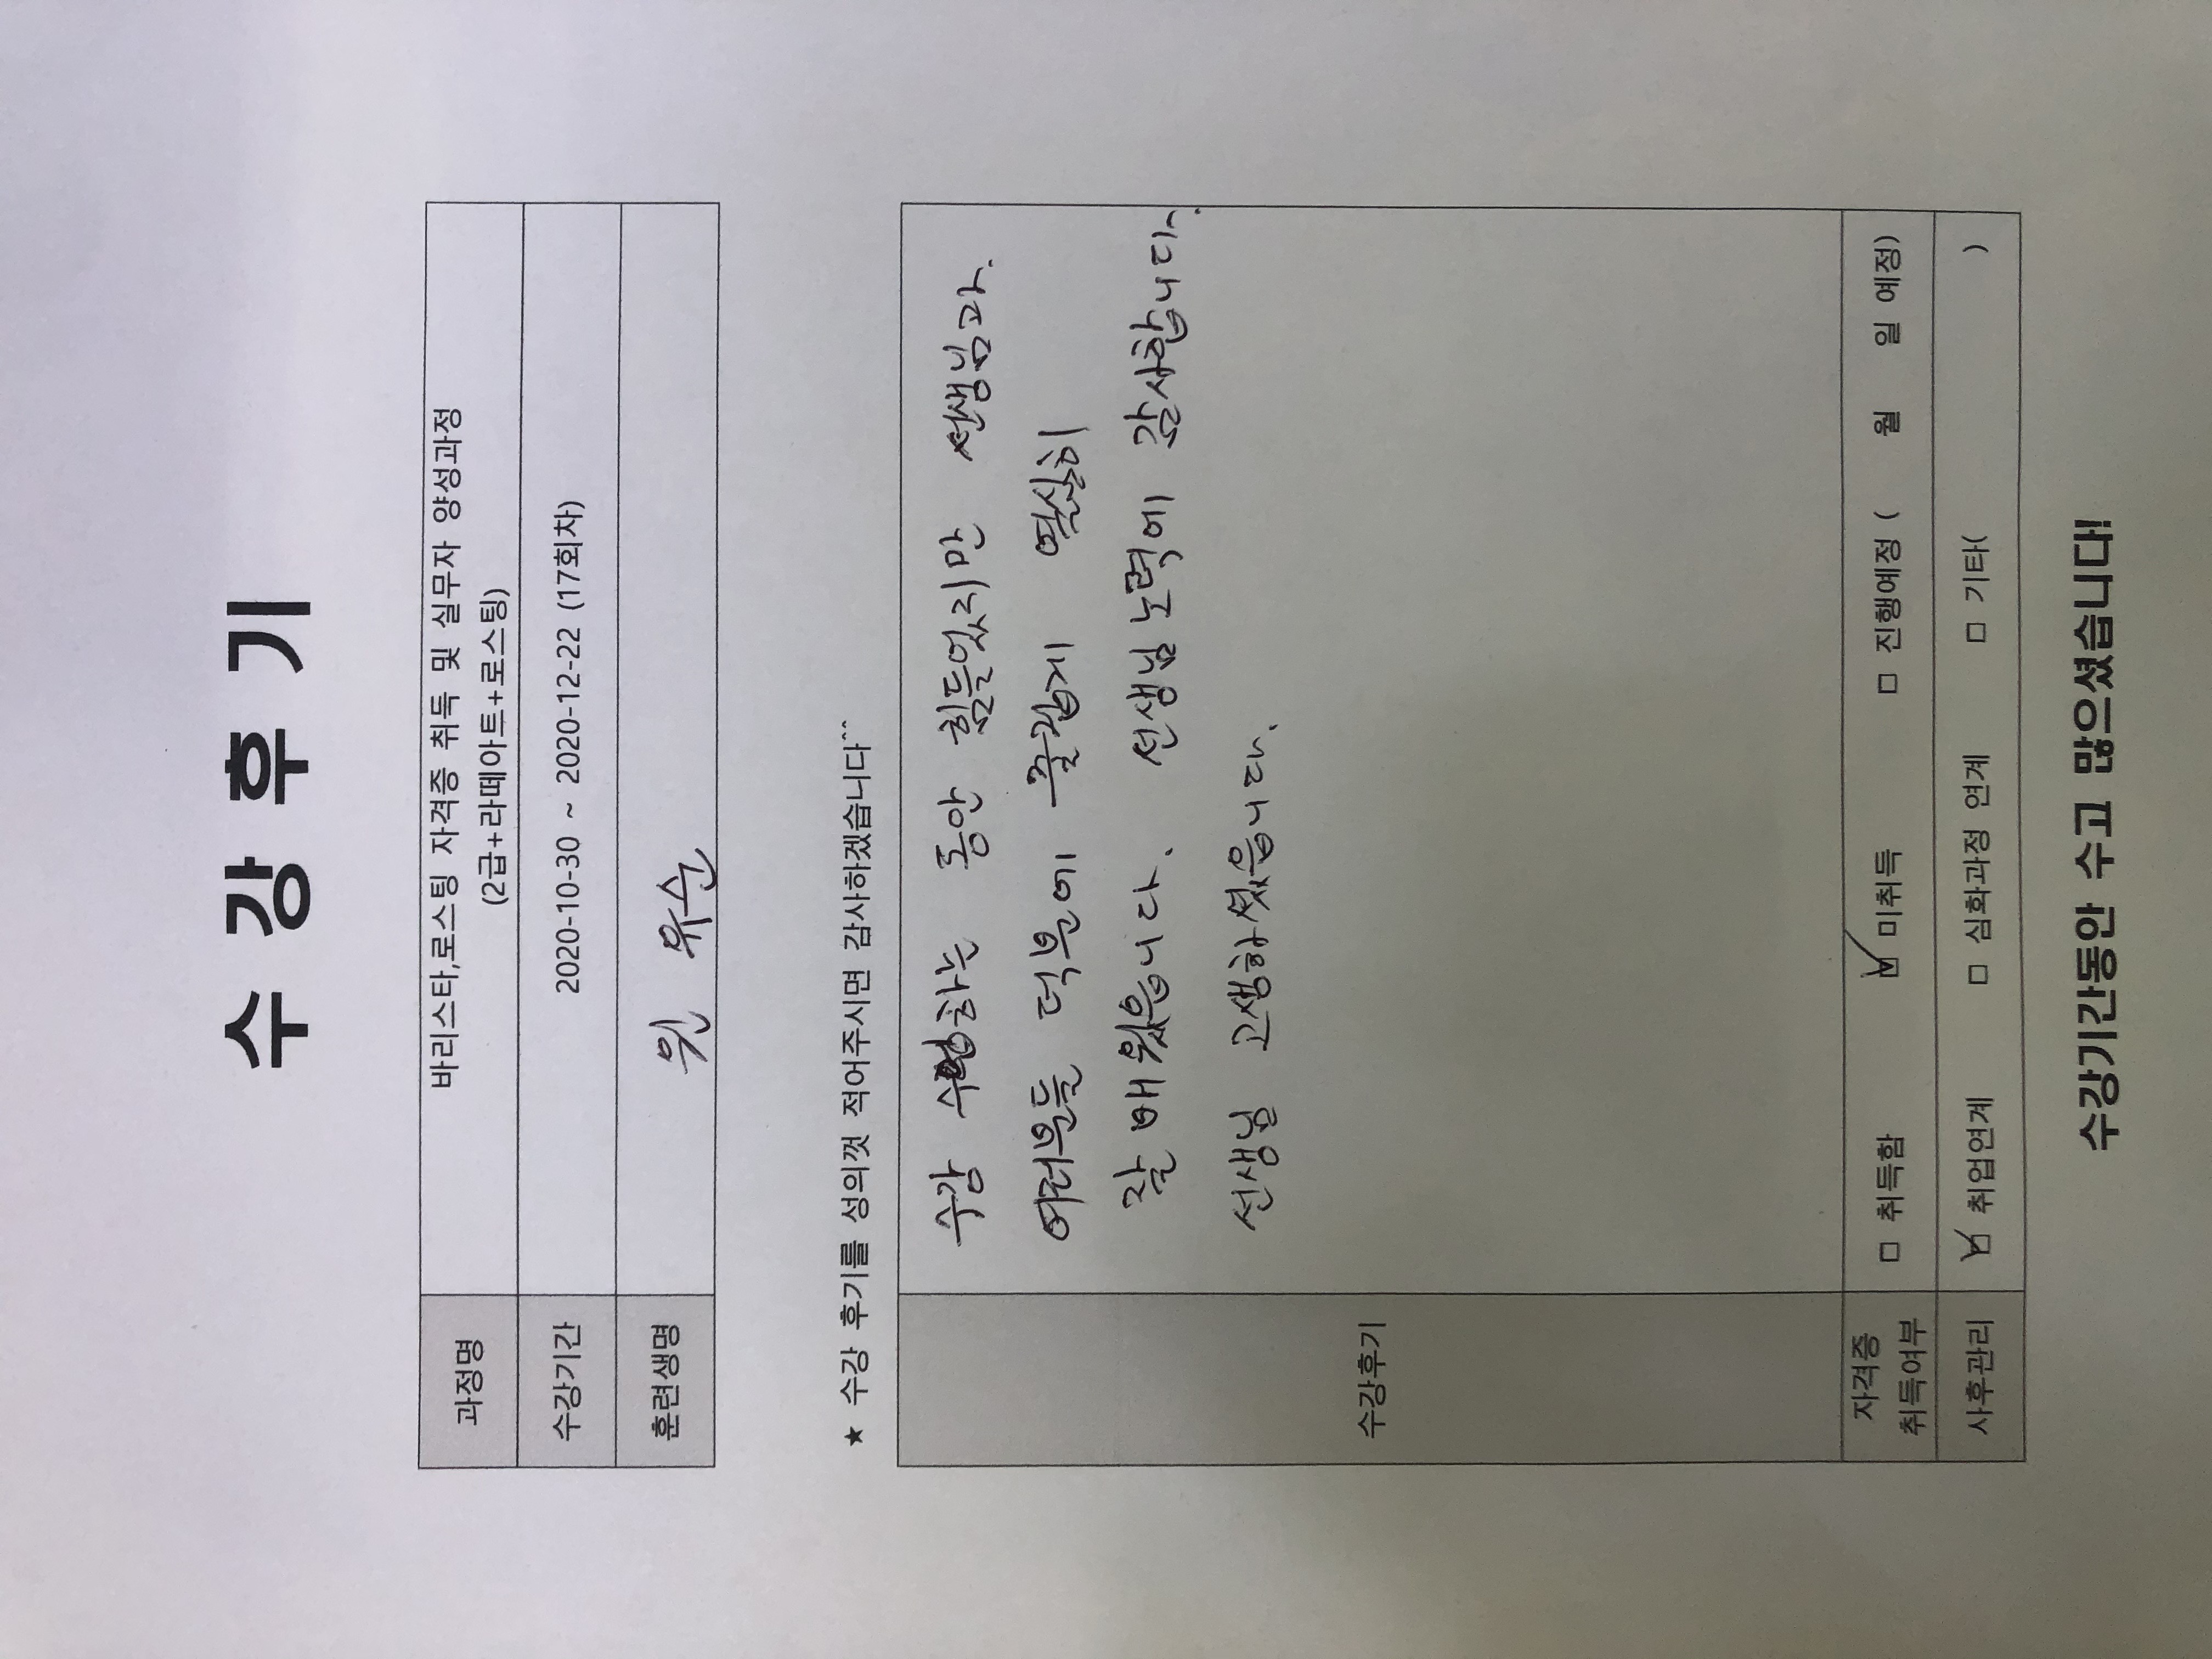 수 강 후 기
과정명 바리스타,로스팅 자격증 취득 및 실무자 양성과정
(2급+라떼아트+로스팅)
수강기간 2020-10-30 ~ 2020-12-22 (17회차)
훈련생명 원 유순
★ 수강 후기를 성의껏 적어주시면 감사하겠습니다^^
수강후기
수강 수업하는 동안 힘들었지만 선생님과.
여러분들 덕분에 즐겁게 열실히
잘 배웠읍니다. 선생님 노력에 감사합니다.
선생님 고생하셨읍니다.
자격증
취득여부 □ 취득함 ☑ 미취득 □ 진행예정 ( 월 일 예정)
사후관리 ☑ 취업연계 □ 심화과정 연계 □ 기타( )
수강기간동안 수고 많으셨습니다!